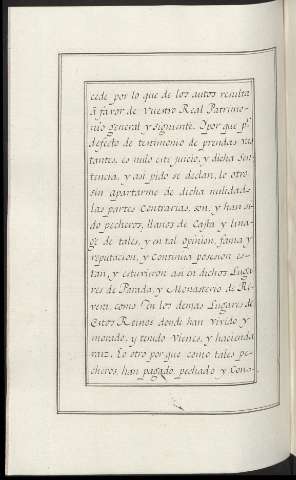 cede por lo que de los autos resulta
à favor de Vuestro Real Patrimo-
nio general y siguiente. Y por que pr.
defecto de testimonio de prendas vas
tantes, es nulo este juicio, y dicha Sen-
tencia, y asi pido se declare, lo otro
sin apartarme de dicha nulidad,
las partes Contrarias, son, y han si-
do pecheros, llanos de Casta y lina-
ge de tales, y en tal opinion, fama y
reputacion, y Continua posesion es-
tan y estuvieron asi en dichos Luga
res de Parada, y Monasterio de Re-
vent, como En los demas Lugares de
Estos Reinos donde han vivido y
morado, y tenido Vienes, y hacienda
raiz. Lo otro por que como tales pe-
cheros, han pagado, pechado y Cons-